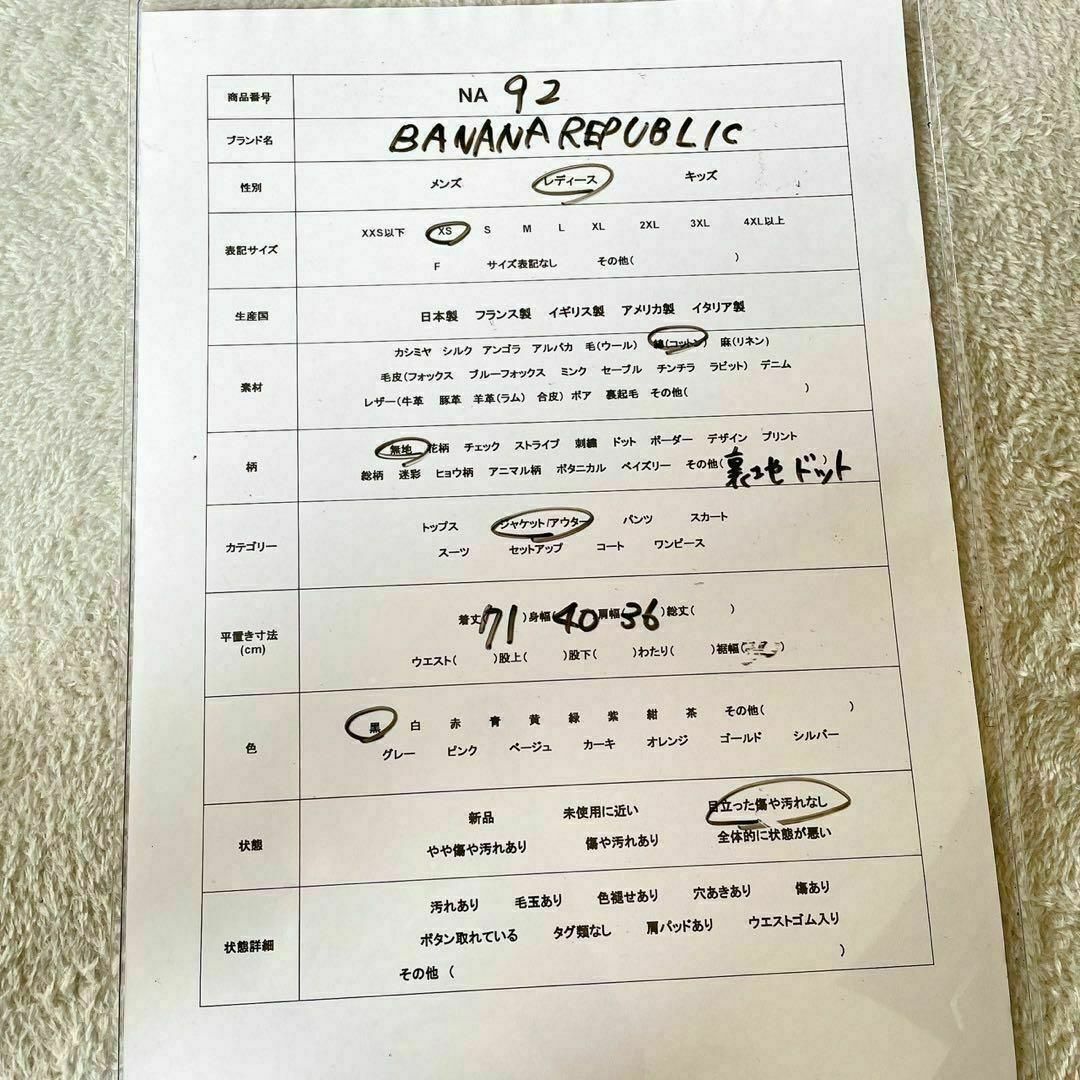 商品番号 NA 92
ブランド名 BANANA REPUBLIC
性別 メンズ レディース キッズ
表記サイズ XXS以下 XS S M L XL 2XL 3XL 4XL以上
F サイズ表記なし その他( )
生産国 日本製 フランス製 イギリス製 アメリカ製 イタリア製
素材 カシミヤ シルク アンゴラ アルパカ 毛(ウール) 綿(コットン) 麻(リネン)
毛皮(フォックス ブルーフォックス ミンク セーブル チンチラ ラビット) デニム
レザー(牛革 豚革 羊革(ラム) 合皮) ボア 裏起毛 その他( )
柄 無地 花柄 チェック ストライプ 刺繍 ドット ボーダー デザイン プリント
総柄 迷彩 ヒョウ柄 アニマル柄 ボタニカル ペイズリー その他(裏地 ドット)
カテゴリー トップス ジャケット/アウター パンツ スカート
スーツ セットアップ コート ワンピース
平置き寸法 (cm) 着丈(71)身幅(40)肩幅(36)総丈( )
ウエスト( )股上( )股下( )わたり( )裾幅( )
色 黒 白 赤 青 黄 緑 紫 紺 茶 その他( )
グレー ピンク ベージュ カーキ オレンジ ゴールド シルバー
状態 新品 未使用に近い 目立った傷や汚れなし
やや傷や汚れあり 傷や汚れあり 全体的に状態が悪い
状態詳細 汚れあり 毛玉あり 色褪せあり 穴あきあり 傷あり
ボタン取れている タグ類なし 肩パッドあり ウエストゴム入り
その他 ( )